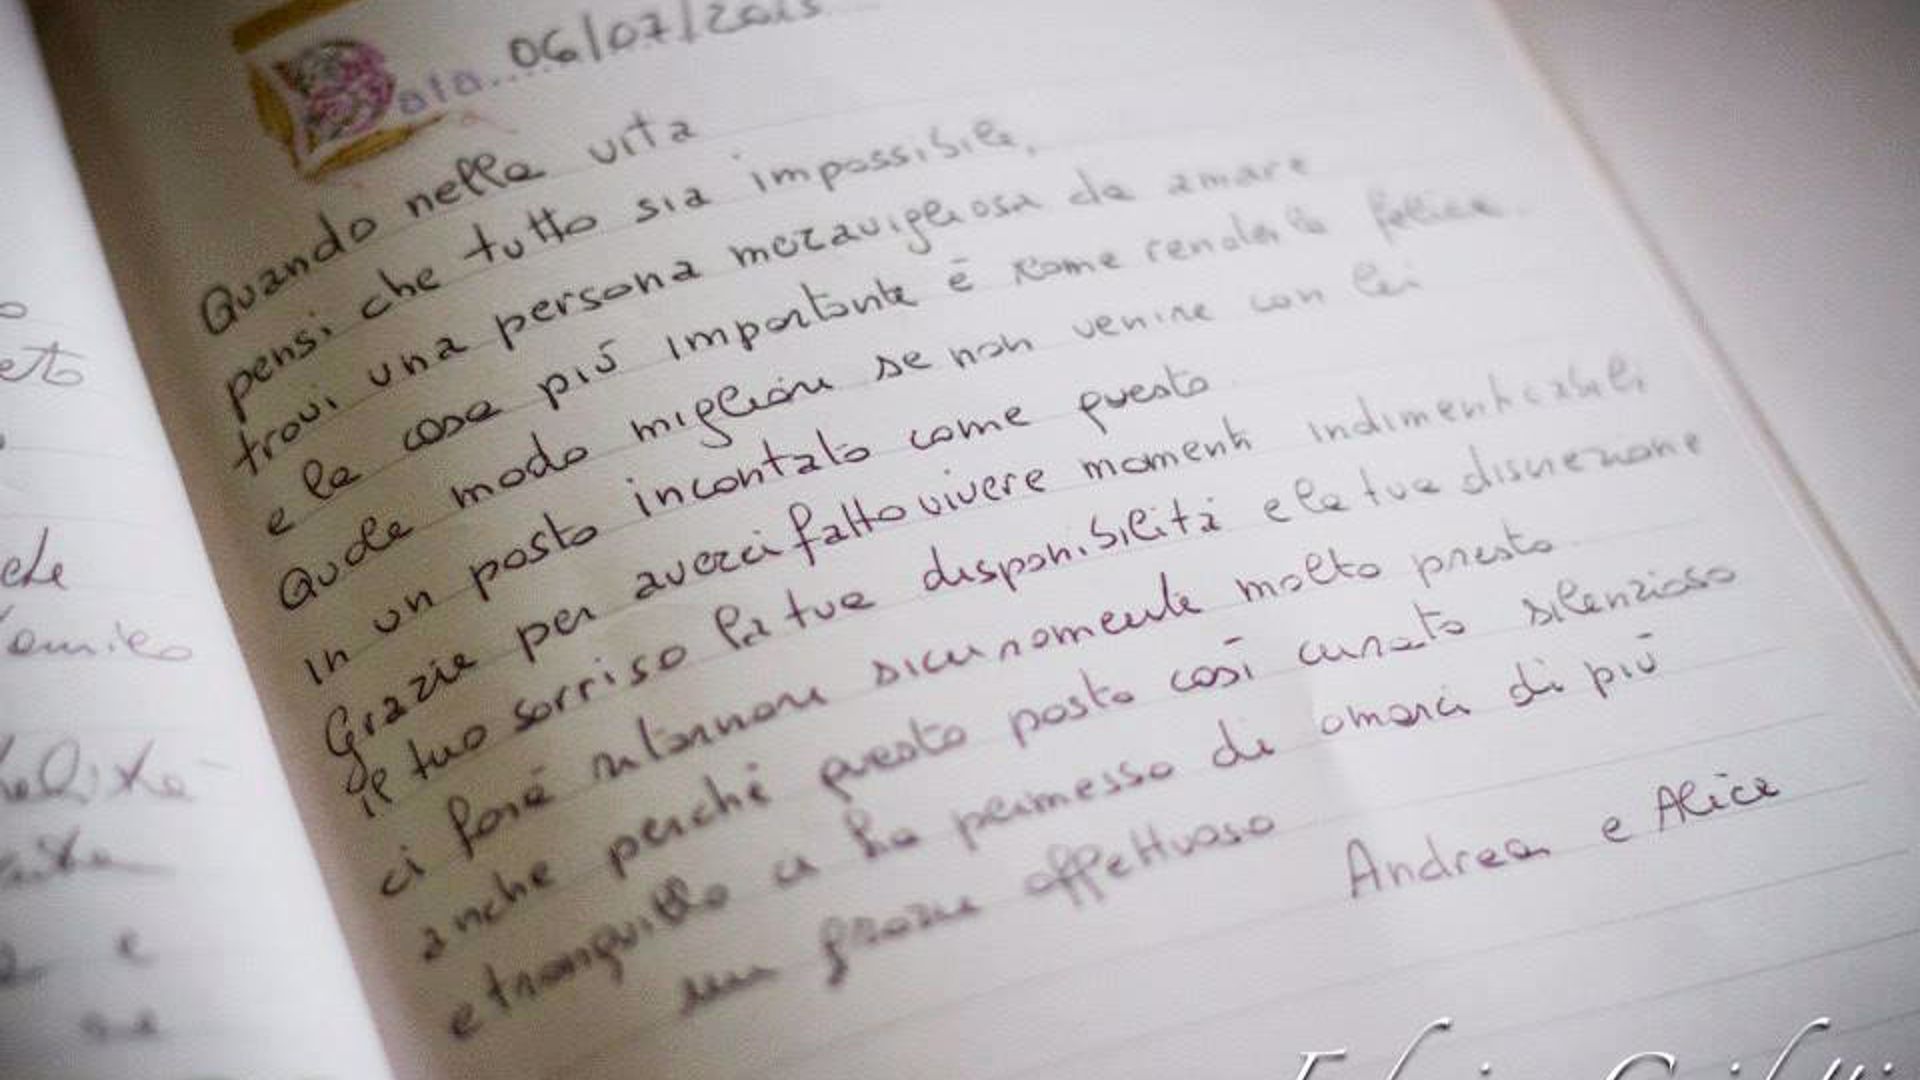 Data.... 06/07/2015
Quando nella vita
pensi che tutto sia impossibile,
trovi una persona meravigliosa da amare
e la cosa più importante è come renderla felice.
Quale modo migliore se non venire con lei
in un posto incontato come questo.
Grazie per averci fatto vivere momenti indimenticabili
il tuo sorriso la tua disponibilità e la tua discrezione
ci farà ritornare sicuramente molto presto
anche perché questo posto così curato silenzioso
e tranquillo ci ha permesso di amarci di più
un grazie affettuoso
Andrea e Alice
eto
che
e